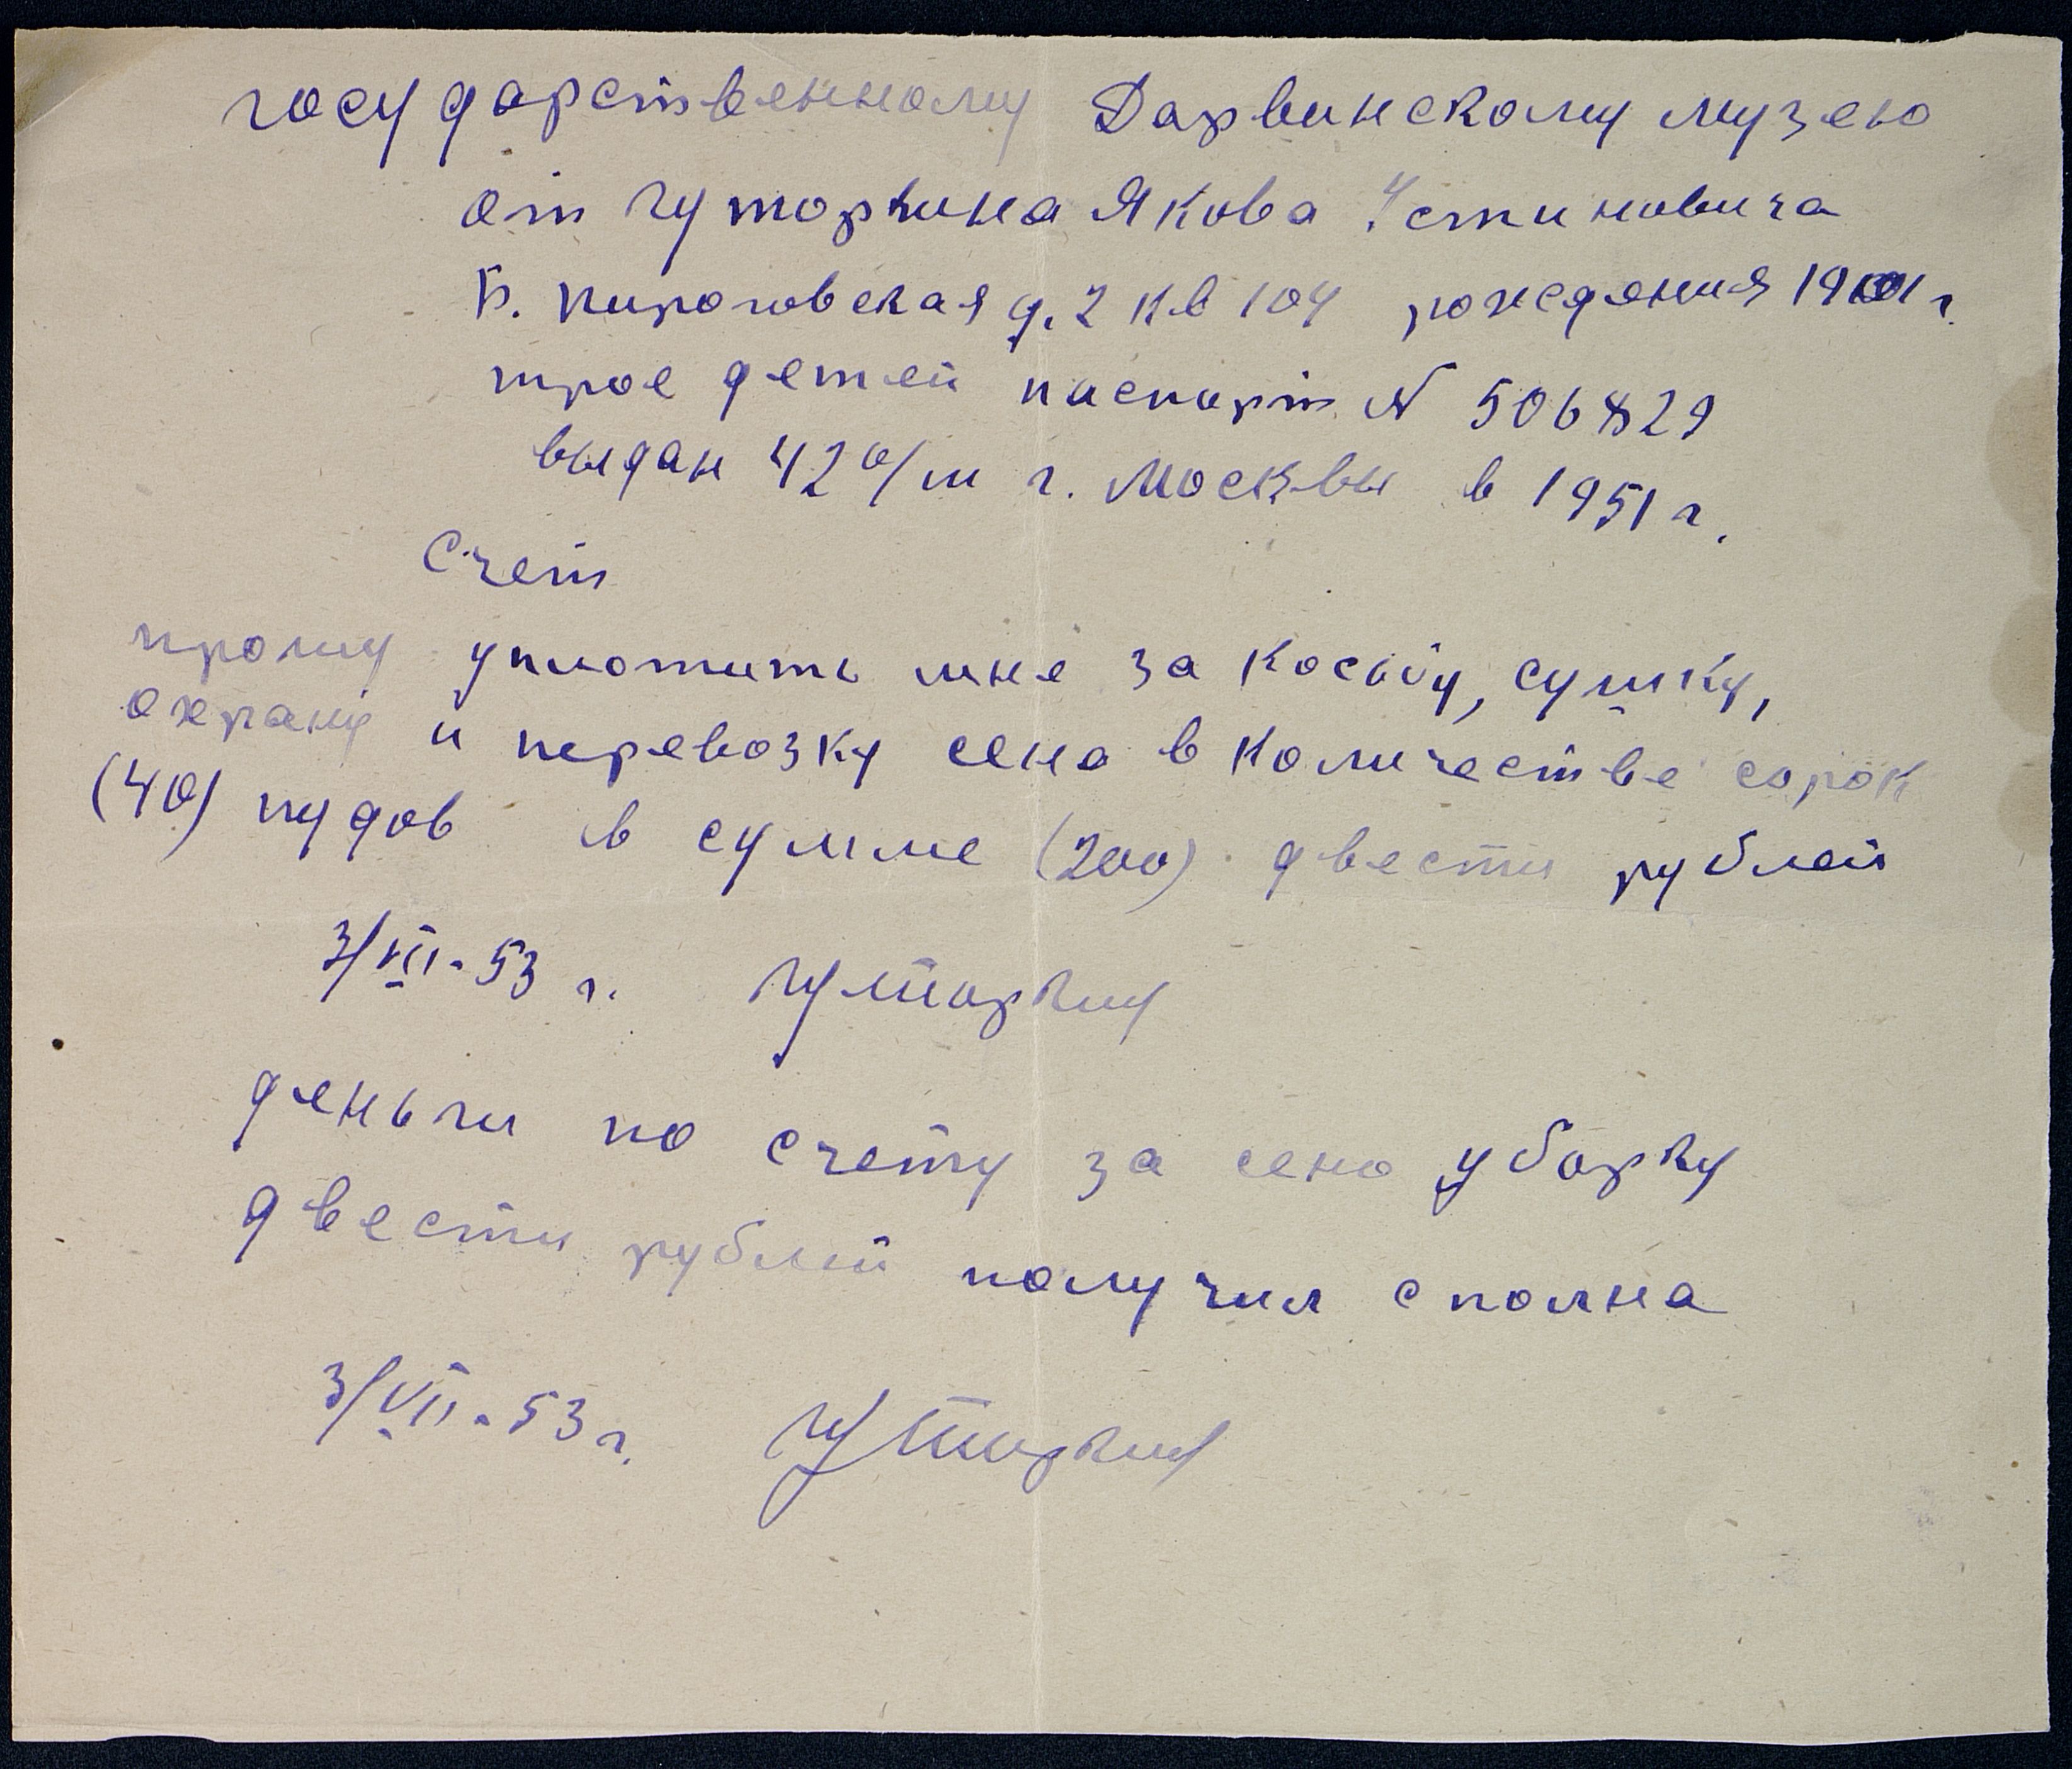 государственному Дарвинскому музею
от Гуторкина Якова Устиновича
Б. Пироговская д. 2 кв 104 рождения г.
трое детей паспорт N 506829
выдан 42 о/м г. Москвы в 1951 г.
Счет
прошу уплотить мне за косьбу, сушку,
охрану и перевозку сена в количестве сорок
(40) пудов в сумме (200) двести рублей
3/VII-53 г. Гуторкин
деньги по счету за сено уборку
двести рублей получил сполна
3/VII-53 г. Гуторкин